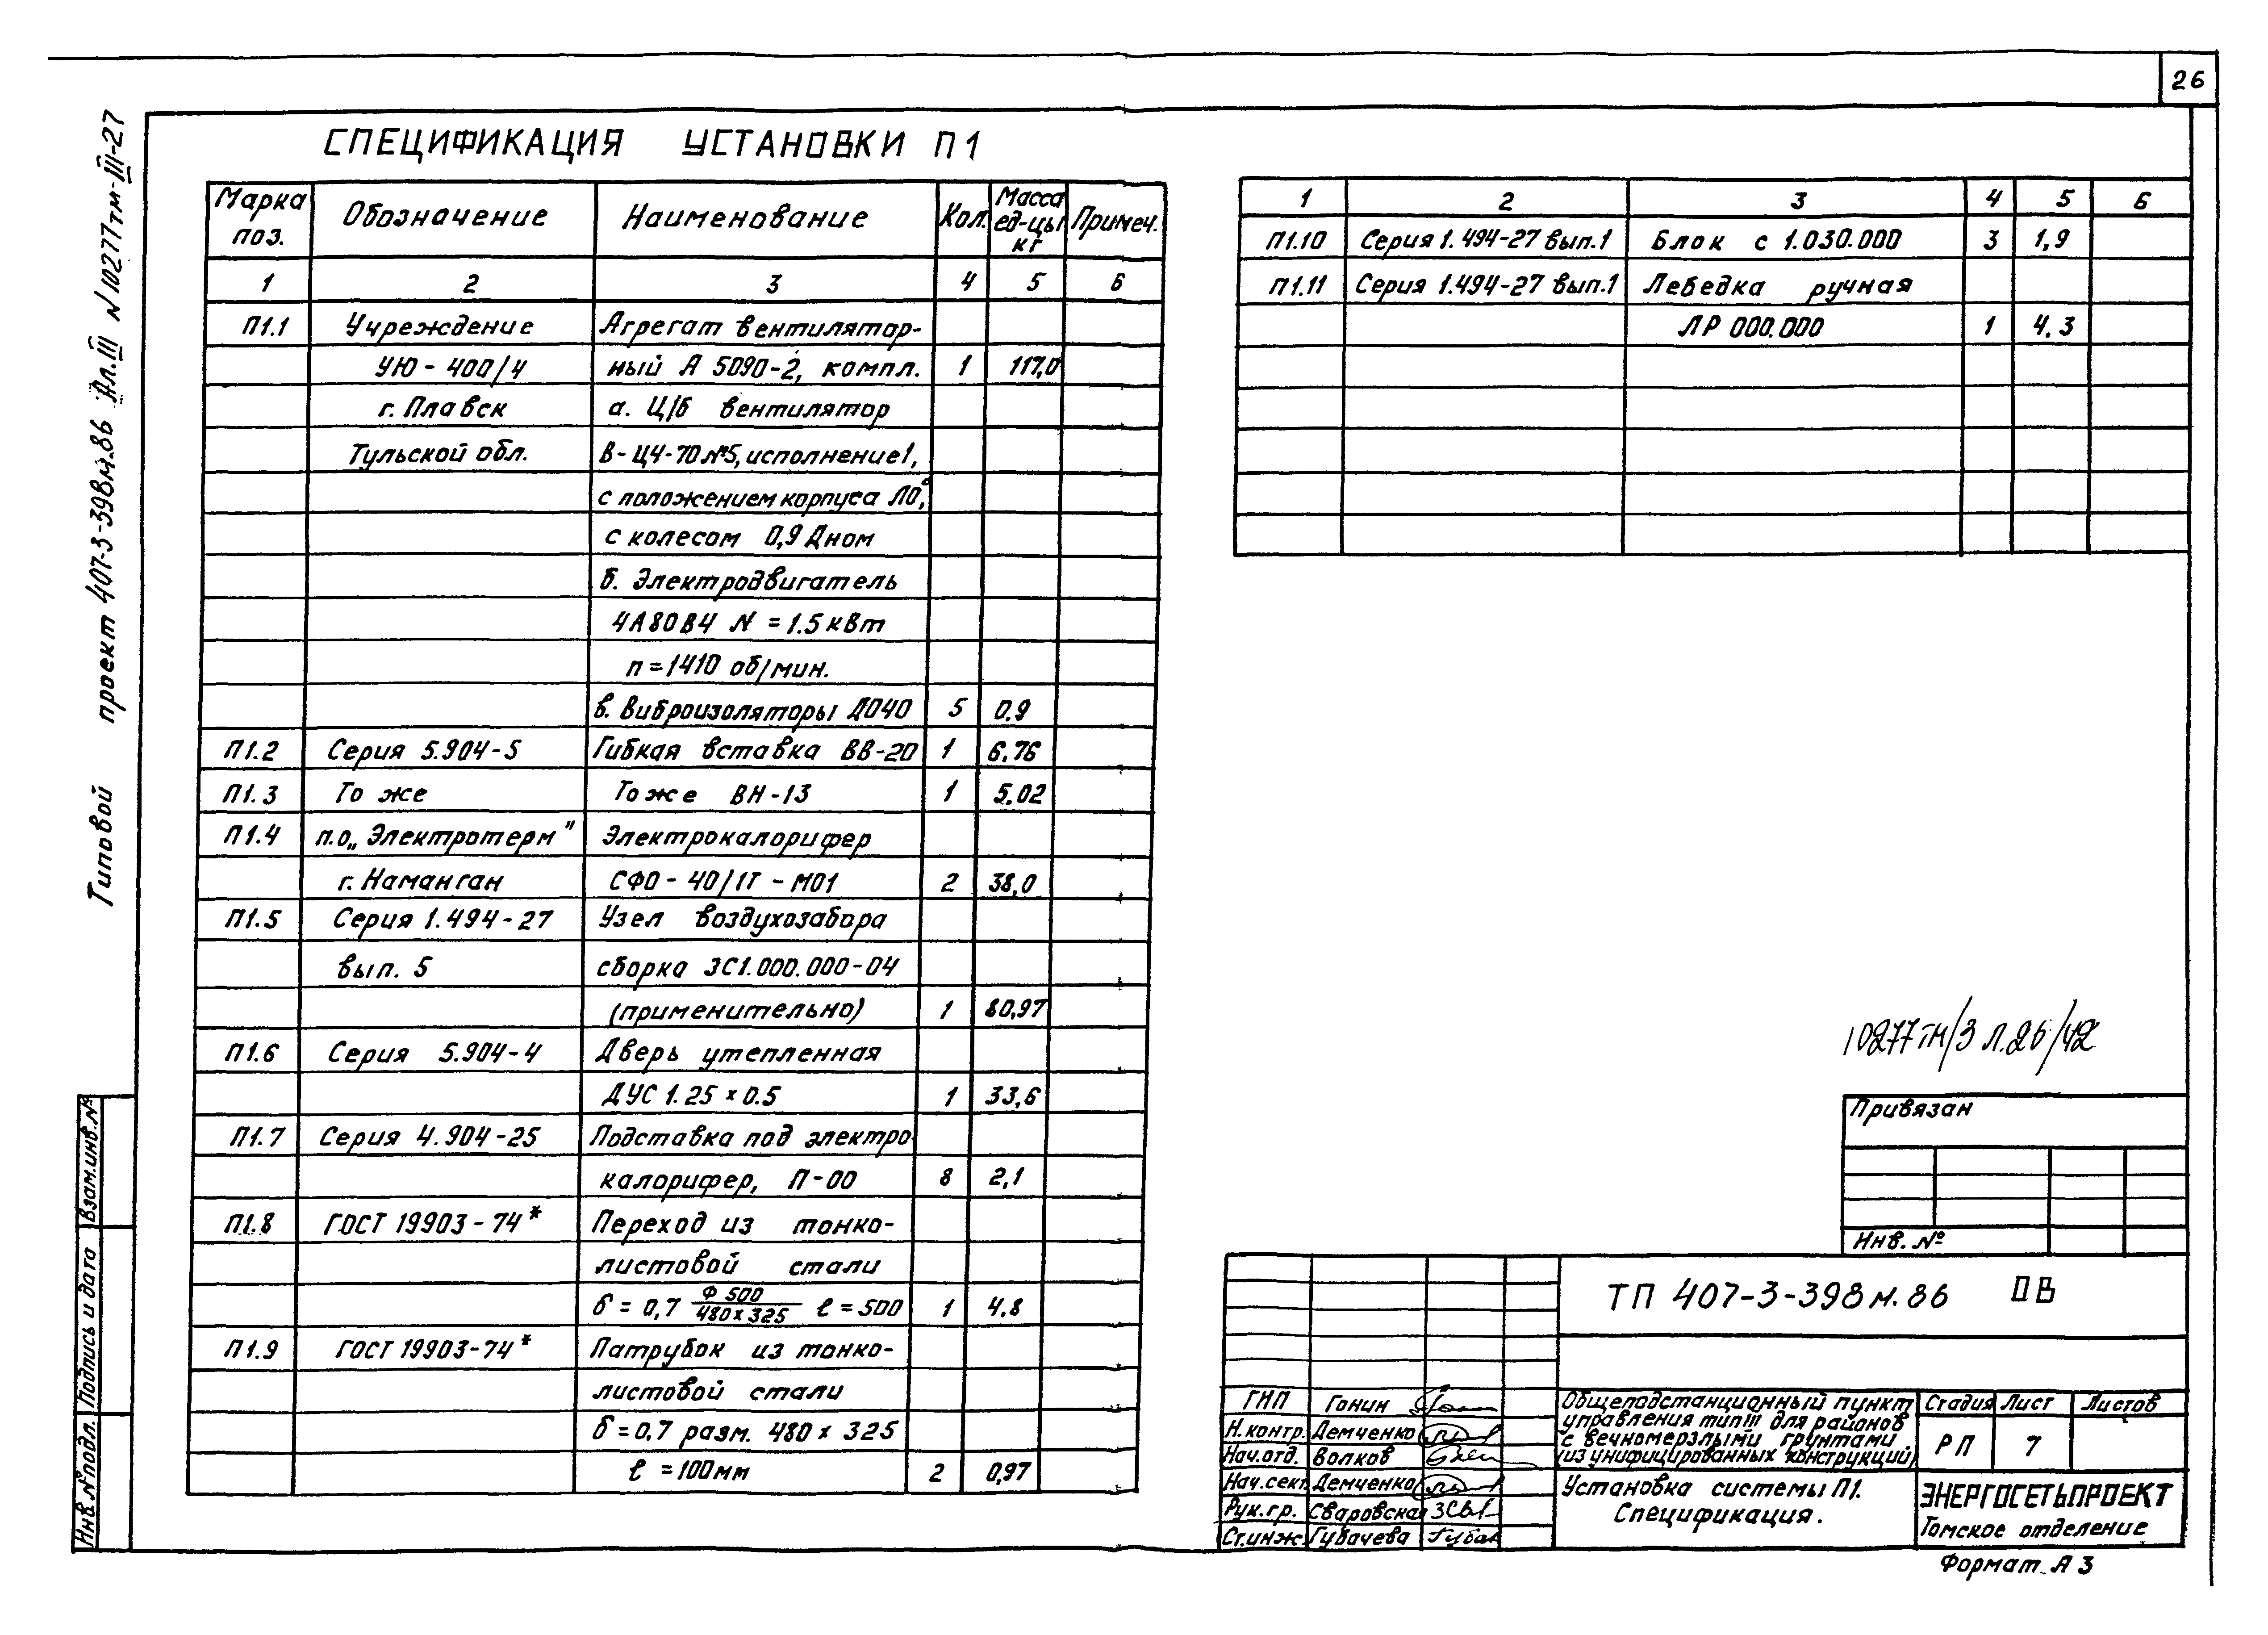 26
СПЕЦИФИКАЦИЯ УСТАНОВКИ П1
Марка поз. Обозначение Наименование Кол. Масса ед-цы кг Примеч.
1 2 3 4 5 6
П1.1 Учреждение Агрегат вентилятор-
УЮ-400/4 ный А 5090-2, компл. 1 117,0
г. Плавск а. Ц/б вентилятор
Тульской обл. В-Ц4-70№5, исполнение1,
с положением корпуса Л0°,
с колесом 0,9 Дном
б. Электродвигатель
4А80В4 N = 1.5 кВт
n = 1410 об/мин.
в. Виброизоляторы ДО40 5 0.9
П1.2 Серия 5.904-5 Гибкая вставка ВВ-20 1 6,76
П1.3 То же То же ВН-13 1 5,02
П1.4 п.о„Электротерм" Электрокалорифер
г. Наманган СФО-40/1Т-М01 2 38,0
П1.5 Серия 1.494-27 Узел воздухозабора
вып. 5 сборка ЗС1.000.000-04
(применительно) 1 80,97
П1.6 Серия 5.904-4 Дверь утепленная
ДУС 1.25 х 0.5 1 33,6
П1.7 Серия 4.904-25 Подставка под электро-
калорифер, П-00 8 2,1
П1.8 ГОСТ 19903-74* Переход из тонко-
листовой стали
δ = 0,7 Ф 500 / 480х325 ℓ = 500 1 4,8
П1.9 ГОСТ 19903-74* Патрубок из тонко-
листовой стали
δ = 0,7 разм. 480 х 325
ℓ = 100мм 2 0,97
1 2 3 4 5 6
П1.10 Серия 1.494-27 вып.1 Блок с 1.030.000 3 1,9
П1.11 Серия 1.494-27 вып.1 Лебедка ручная
ЛР 000.000 1 4.3
10277тм/3 л.26/42
Привязан
Инв. №
ТП 407-3-398м.86 ОВ
ГИП Гонин
Н.контр. Демченко
Нач.отд. Волков
Нач.сект. Демченко
Рук.гр. Сваровская
Ст.инж. Губачева
Общеподстанционный пункт
управления тип III для районов
с вечномерзлыми грунтами
(из унифицированных конструкций)
Стадия Лист Листов
РП 7
Установка системы П1.
Спецификация.
ЭНЕРГОСЕТЬПРОЕКТ
Томское отделение
Формат А3
Типовой проект 407-3-398м.86 Ал.III N10277тм-III-27
Взам.инв.№
Подпись и дата
Инв.№подл.